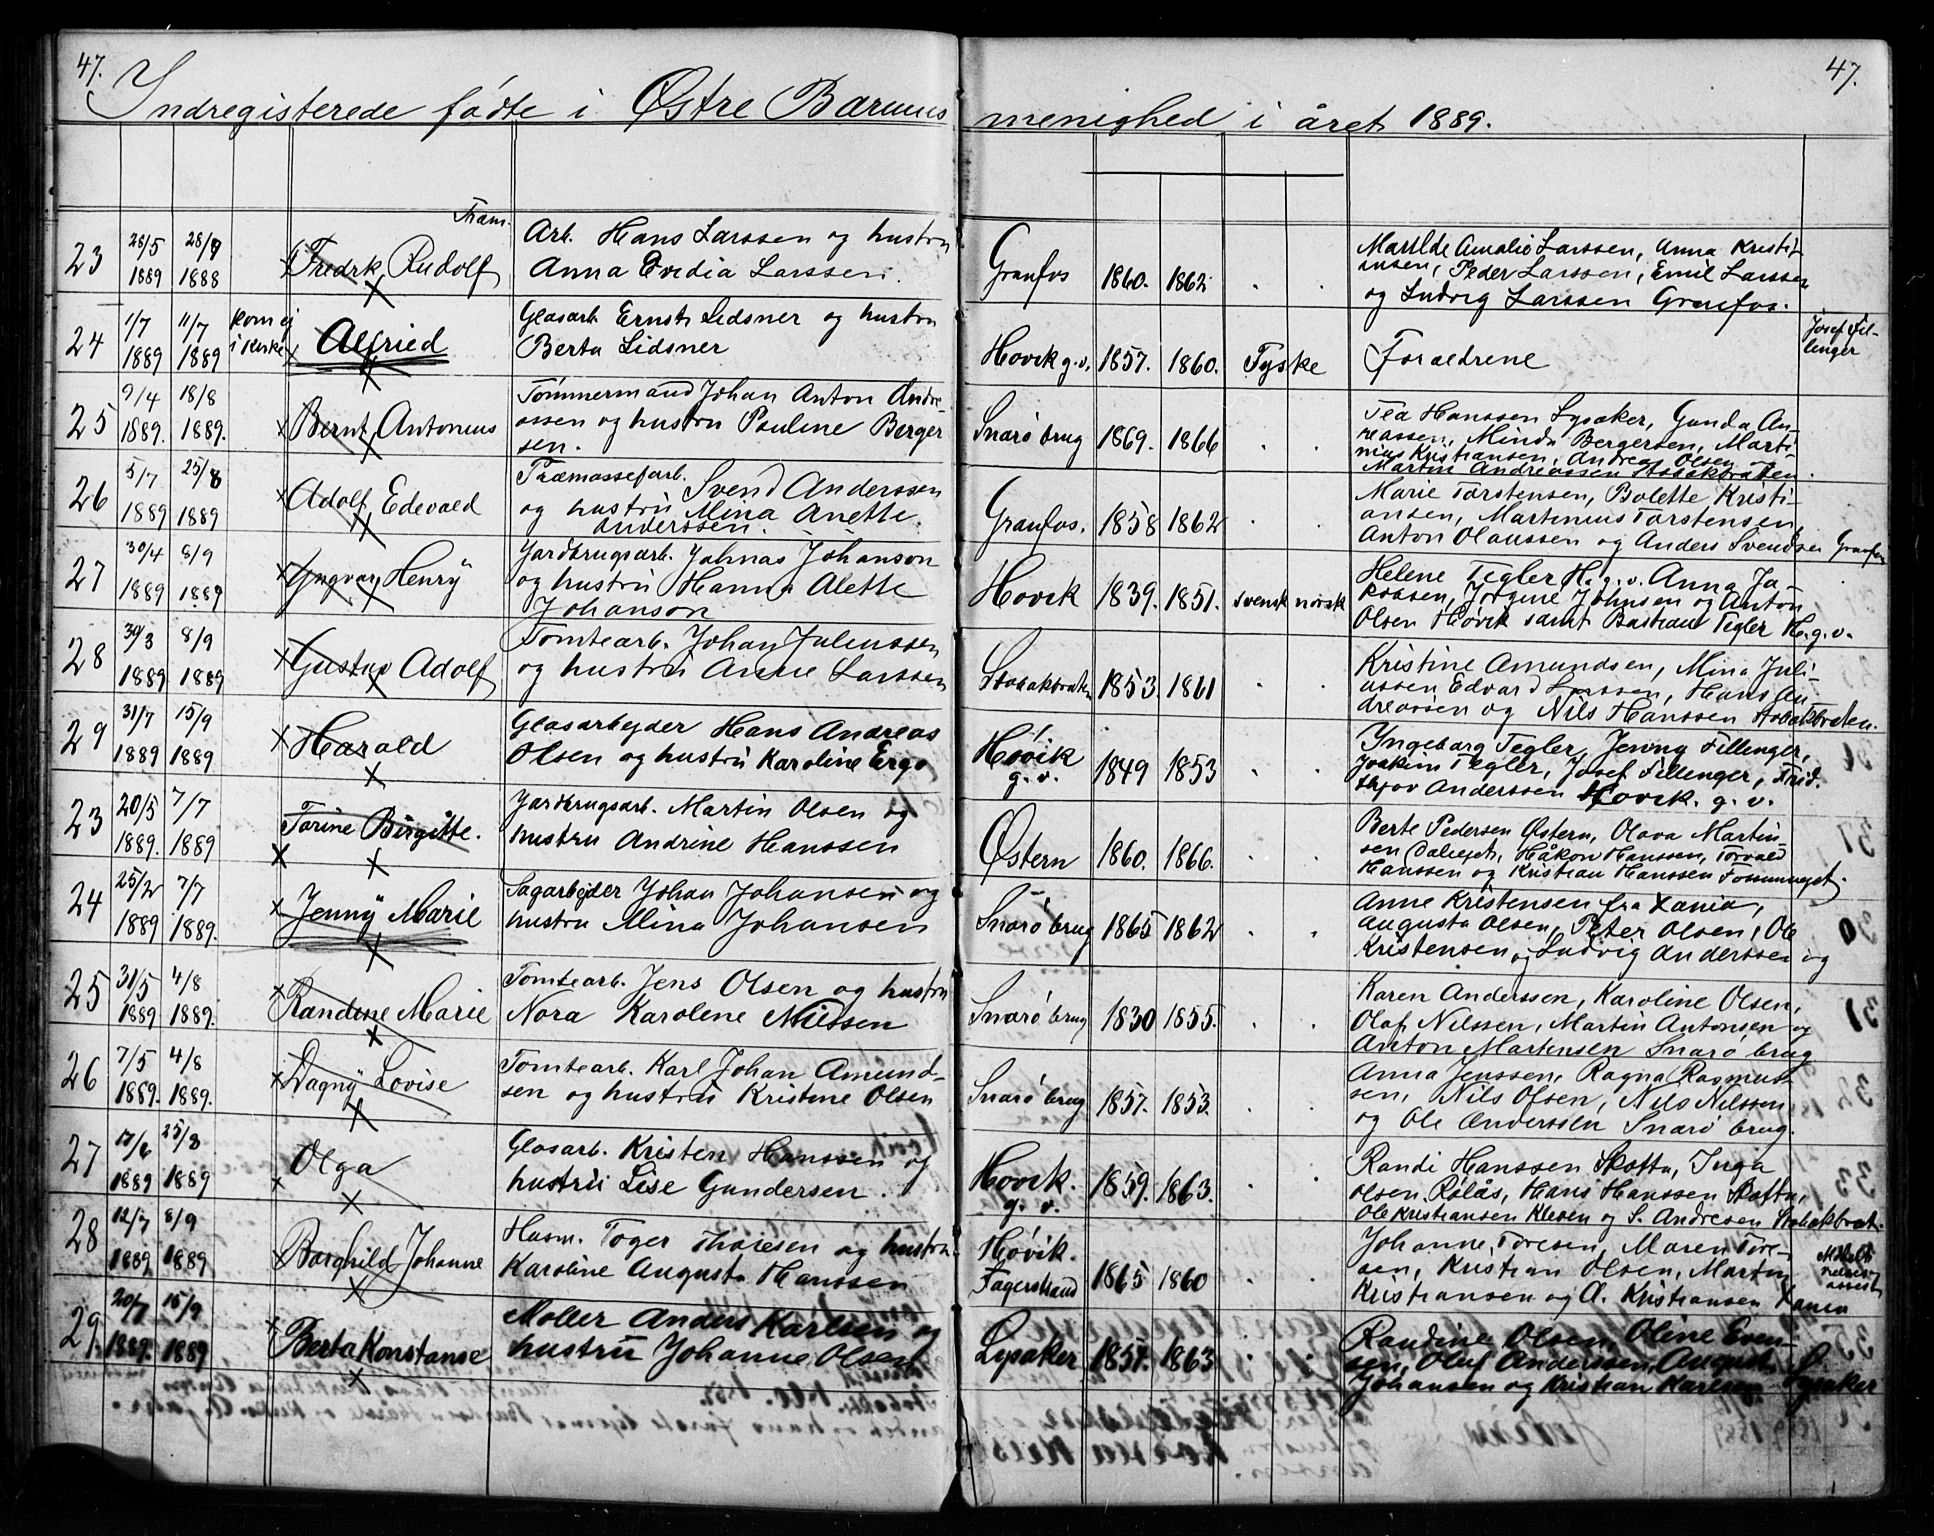 47.
47.
Indregisterede fødte i Østre Bærums menighed i året 1889.
Fram.
23 28/5 1889 28/9 1888 Fredrk Rudolf
Arb. Hans Larssen og hustru
Anna Evedia Larssen.
Granfos 1860. 1862 . .
Marilde Amalie Larssen, Anna Kristi-
ansen, Peder Larssen, Emil Larssen
og Ludvig Larssen Granfos.
24 1/7 1889 11/7 1889 kom ej i kirke Alfried
Glasarb. Ernst Lidsner og hustru
Berta Lidsner
Høvik g.v. 1857. 1860. Tyske
Foraldrene
Josef Fil-
lenger
25 9/4 1889. 18/8 1889. Bernt Antonius
Tømmermand Johan Anton Andre-
assen og hustru Pauline Berger
sen.
Snarø brug 1869. 1866 . .
Tea Hanssen Lysaker, Gunda An-
reassen, Minda Bergersen, Marti-
nius Kristiansen, Andreas Olsen
Martin Andreassen Stabakbraten.
26 5/7 1889 25/8 1889 Adolf Edevald
Træmassefarb. Svend Anderssen
og hustru Mina Anette
Anderssen.
Granfos. 1858 1862 . .
Marie Torstensen, Bolette Kristi-
ansen, Martenius Torstensen,
Anton Olaussen og Anders Svendsen Granfos
27 30/4 1889 8/9 1889 Yngvar Henrÿ
Jordbrugsarb. Johnas Johanson
og hustru Hanna Alette
Johanson
Høvik 1839. 1851. svensk norsk
Helene Tegler H.g.v. Anna Ja-
kobsen, Jørgine Johnsen og Anton
Olsen Høvik samt Bastian Tegler H.g.v.
28 30/3 1889 8/9 1889 Gustav Adolf
Tomtearb. Johan Juliussen
og hustru Anne Larssen
Stabakbraten 1853. 1861 . .
Kristine Amundsen, Mina Juli-
assen Edvard Larssen, Hans An-
dreassen og Nils Hanssen Stabakbraten.
29 31/7 1889 15/9 1889 Harald
Glasarbejder Hans Andreas
Olsen og hustru Karoline Ergo
Høvik
g. v. 1849 1853 . .
Yngeborg Tegler, Jenny Fillenger,
Joakim Tegler, Josef Fillenger, Frid-
thjov Anderssen Høvik. g. v.
23 20/5 1889. 7/7 1889 Torine Birgitte.
Jordbrugsarb. Martin Olsen og
hustru Andrine Hanssen
Østern 1860. 1866. . .
Berte Pedersen Østern, Olava Martin
sen Dalvejet, Håkon Hanssen, Torvald
Hanssen og Kristian Hanssen Fossumvejet.
24 25/2 1889 7/7 1889. Jennÿ Marie
Sagarbejder Johan Johansen og
hustru Mina Johansen
Snarø brug 1865 1862 . .
Anne Kristensen fra Xania,
Augusta Olsen, Peter Olsen, Ole
Kristensen og Ludvig Anderssen og
25 31/5 1889 4/8 1889. Randine Marie
Tomtearb. Jens Olsen og hustru
Nora Karolene Nilssen
Snarø brug 1830 1855. . .
Karen Anderssen, Karoline Olsen,
Olaf Nilssen, Martin Antonsen og
Anton Martensen Snarø brug
26 7/5 1889. 4/8 1889. Dagnÿ Lovise
Tomtearb. Karl Johan Amund-
sen og hustru Kristine Olsen
Snarø brug 1857. 1853. . .
Anna Jenssen, Ragna Rasmus-
sen, Nils Olsen, Nils Nilssen
og Ole Anderssen Snarø brug.
27 17/6 1889 25/8 1889 Olga
Glasarb. Kristen Hanssen og
hustru Lise Gundersen.
Høvik.
g. v. 1859. 1863. . .
Randi Hanssen Skotta, Inga
Olsen Rolås, Hans Hanssen Skotta,
Ole Kristiansen Kleven og S. Andresen Stabakbrat.
28 12/7 1889 8/9 1889 Borghild Johanne
Husm. Toger Thoresen og hustru
Karoline Augusta Hanssen
Høvik.
Fagerstrand 1865 1860 . .
Johanne Toresen, Maren Tore-
sen, Kristian Olsen, Martin
Kristiansen og A. Kristiansen Xania
29. 20/7 1889. 15/9 1889 Berta Konstanse
Møller Anders Karlsen og
hustru Johanne Olsen
Lysaker 1857. 1863 . .
Randine Olsen, Oline Even-
sen, Oluf Anderssen, August
Johansen og Kristian Karlsen Lysaker